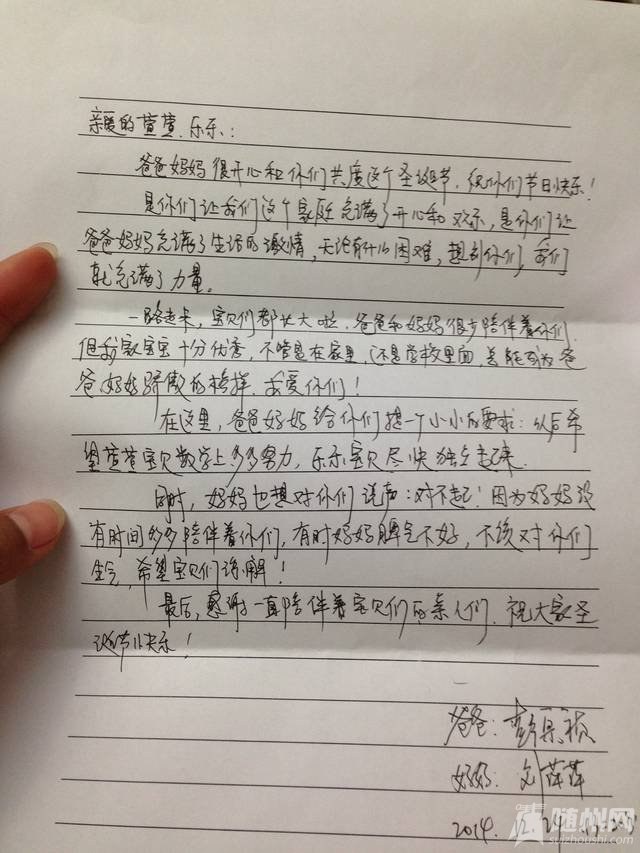 亲爱的萱萱、乐乐:
爸爸妈妈很开心和你们共度这个圣诞节.祝你们节日快乐!
是你们让我们这个家庭充满了开心和欢乐,是你们让
爸爸妈妈充满了生活的激情,无论有什么困难,想到你们,我们
就充满了力量。
一路走来,宝贝们都长大啦.爸爸和妈妈很少陪伴着你们
但我家宝宝十分优秀,不管是在家里,还是学校里面,总能成为爸
爸妈妈骄傲的榜样.我爱你们!
在这里,爸爸妈妈给你们提一个小小的要求:以后希
望萱萱宝贝数学上多多努力,乐乐宝贝尽快独立起来.
同时,妈妈也想对你们说声:对不起!因为妈妈没
有时间多多陪伴着你们,有时妈妈脾气不好,不该对你们
生气,希望宝贝们谅解!
最后,感谢一直陪伴着宝贝们的亲人们.祝大家圣
诞节快乐!
爸爸:
妈妈:刘萍萍
2014.12.24
随州网
suizhoushi.com